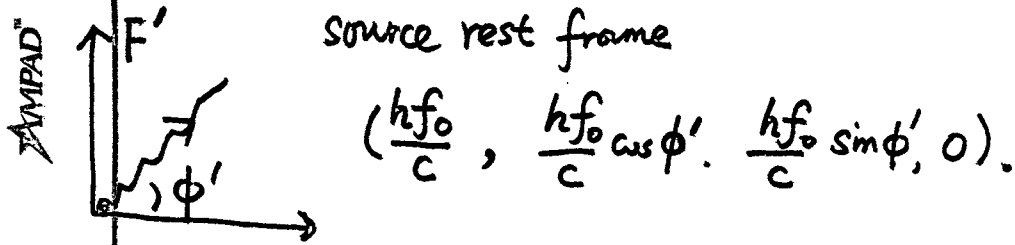 AMPAD™
F'
source rest frame
(hf₀/c, hf₀/c cos φ'. hf₀/c sin φ', 0).
φ'